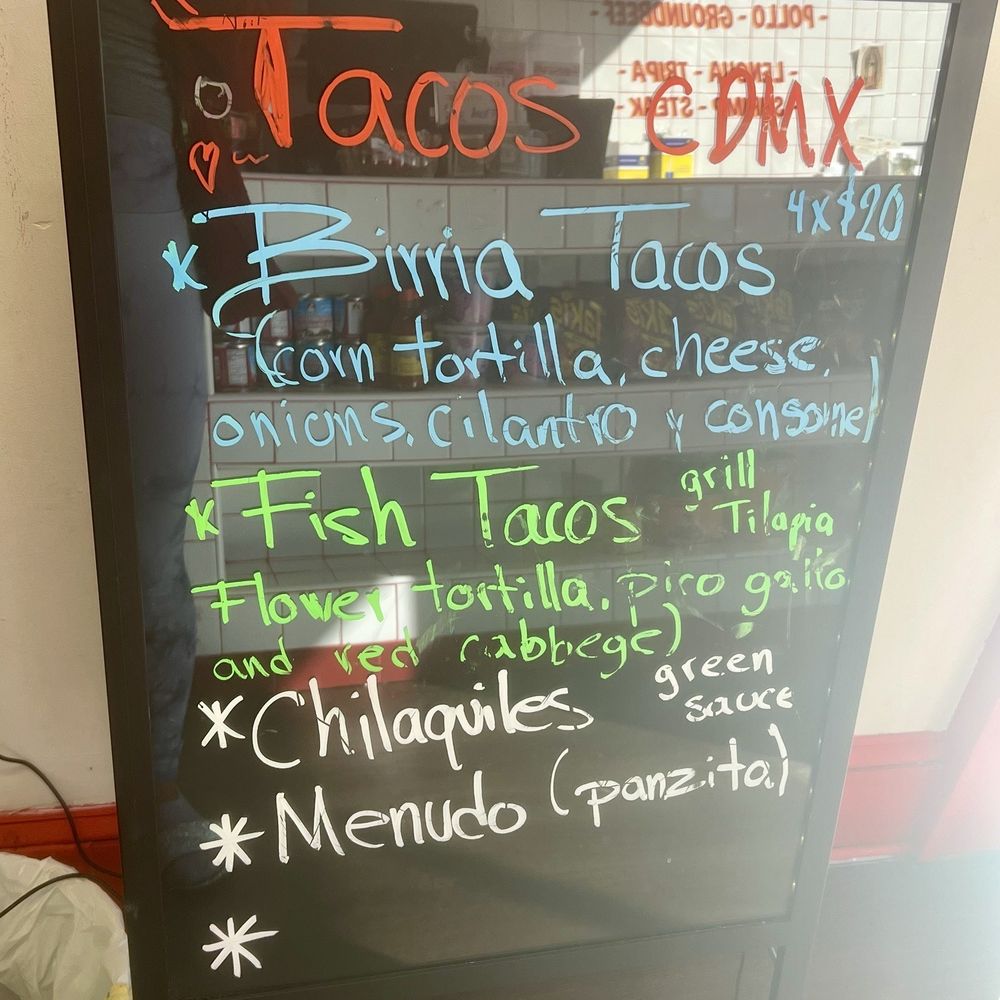 Tacos CDMX
* Birria Tacos 4x$20
(corn tortilla, cheese,
onions, cilantro y consome)
* Fish Tacos grill
Tilapia
Flower tortilla, pico gallo
and red cabbege)
* Chilaquiles green
sauce
* Menudo (panzita)
*
- POLLO - GROUNDBEEF -
- LENGUA - TRIPA -
- STEAK -
Takis